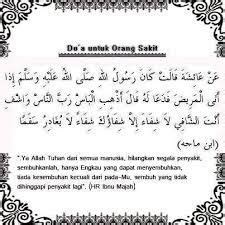 Do'a untuk Orang Sakit
عَنْ عَائِشَةَ قَالَتْ كَانَ رَسُولُ اللَّهِ صَلَّى اللَّهُ عَلَيْهِ وَسَلَّمَ إِذَا
أَتَى الْمَرِيضَ فَدَعَا لَهُ قَالَ أَذْهِبْ الْبَاسْ رَبَّ النَّاسْ وَاشْفِ
أَنْتَ الشَّافِي لَا شِفَاءَ إِلَّا شِفَاؤُكَ شِفَاءً لَا يُغَادِرُ سَقَمًا
(ابن ماجه)
".Ya Allah Tuhan dari semua manusia, hilangkan segala penyakit,
sembuhkanlah, hanya Engkau yang dapat menyembuhkan,
tiada kesembuhan kecuali dari pada-Mu, sembuh yang tidak
dihinggapi penyakit lagi". (HR Ibnu Majah)